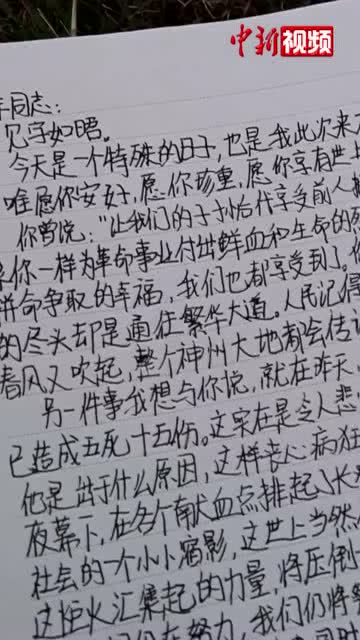 中新视频
同志：
见字如晤。
今天是一个特殊的日子，也是我此次来
唯愿你安好，愿你珍重，愿你享有世上
你曾说："让我们的子子孙孙后代享受前人
你一样为革命事业付出鲜血和生命的
拼命争取的幸福，我们也都享受到了。
的尽头却是通往繁华大道。人民记得
春风又吹起，整个神州大地都会传
另一件事我想与你说，就在昨天，
已造成五死十五伤。这实在是令人悲
他是出于什么原因，这样丧心病狂
夜幕下，在各个献血点排起了长
社会的一个小小缩影，这世上当然
这炬火汇集起的力量，将压倒
在努力，我们仍将